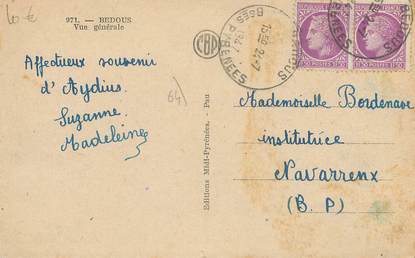 10 €
971. — BEDOUS
Vue générale
Affectueux souvenir
d'Aydius
Suzanne
Madeleine
64)
CBD
Editions Midi-Pyrénées, - Pau
BEDOUS
Bses PYRENEES
1 F 50 POSTES 1 F 50
Mademoiselle Bordenave
institutrice
Navarrenx
(B. P)